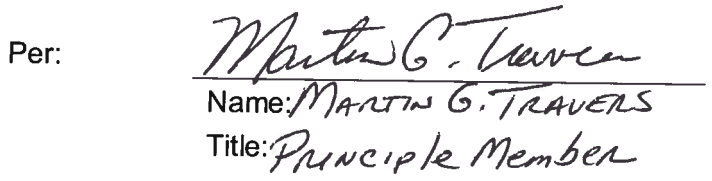 Per: Martin G. Travers
Name: MARTIN G. TRAVERS
Title: Principle Member